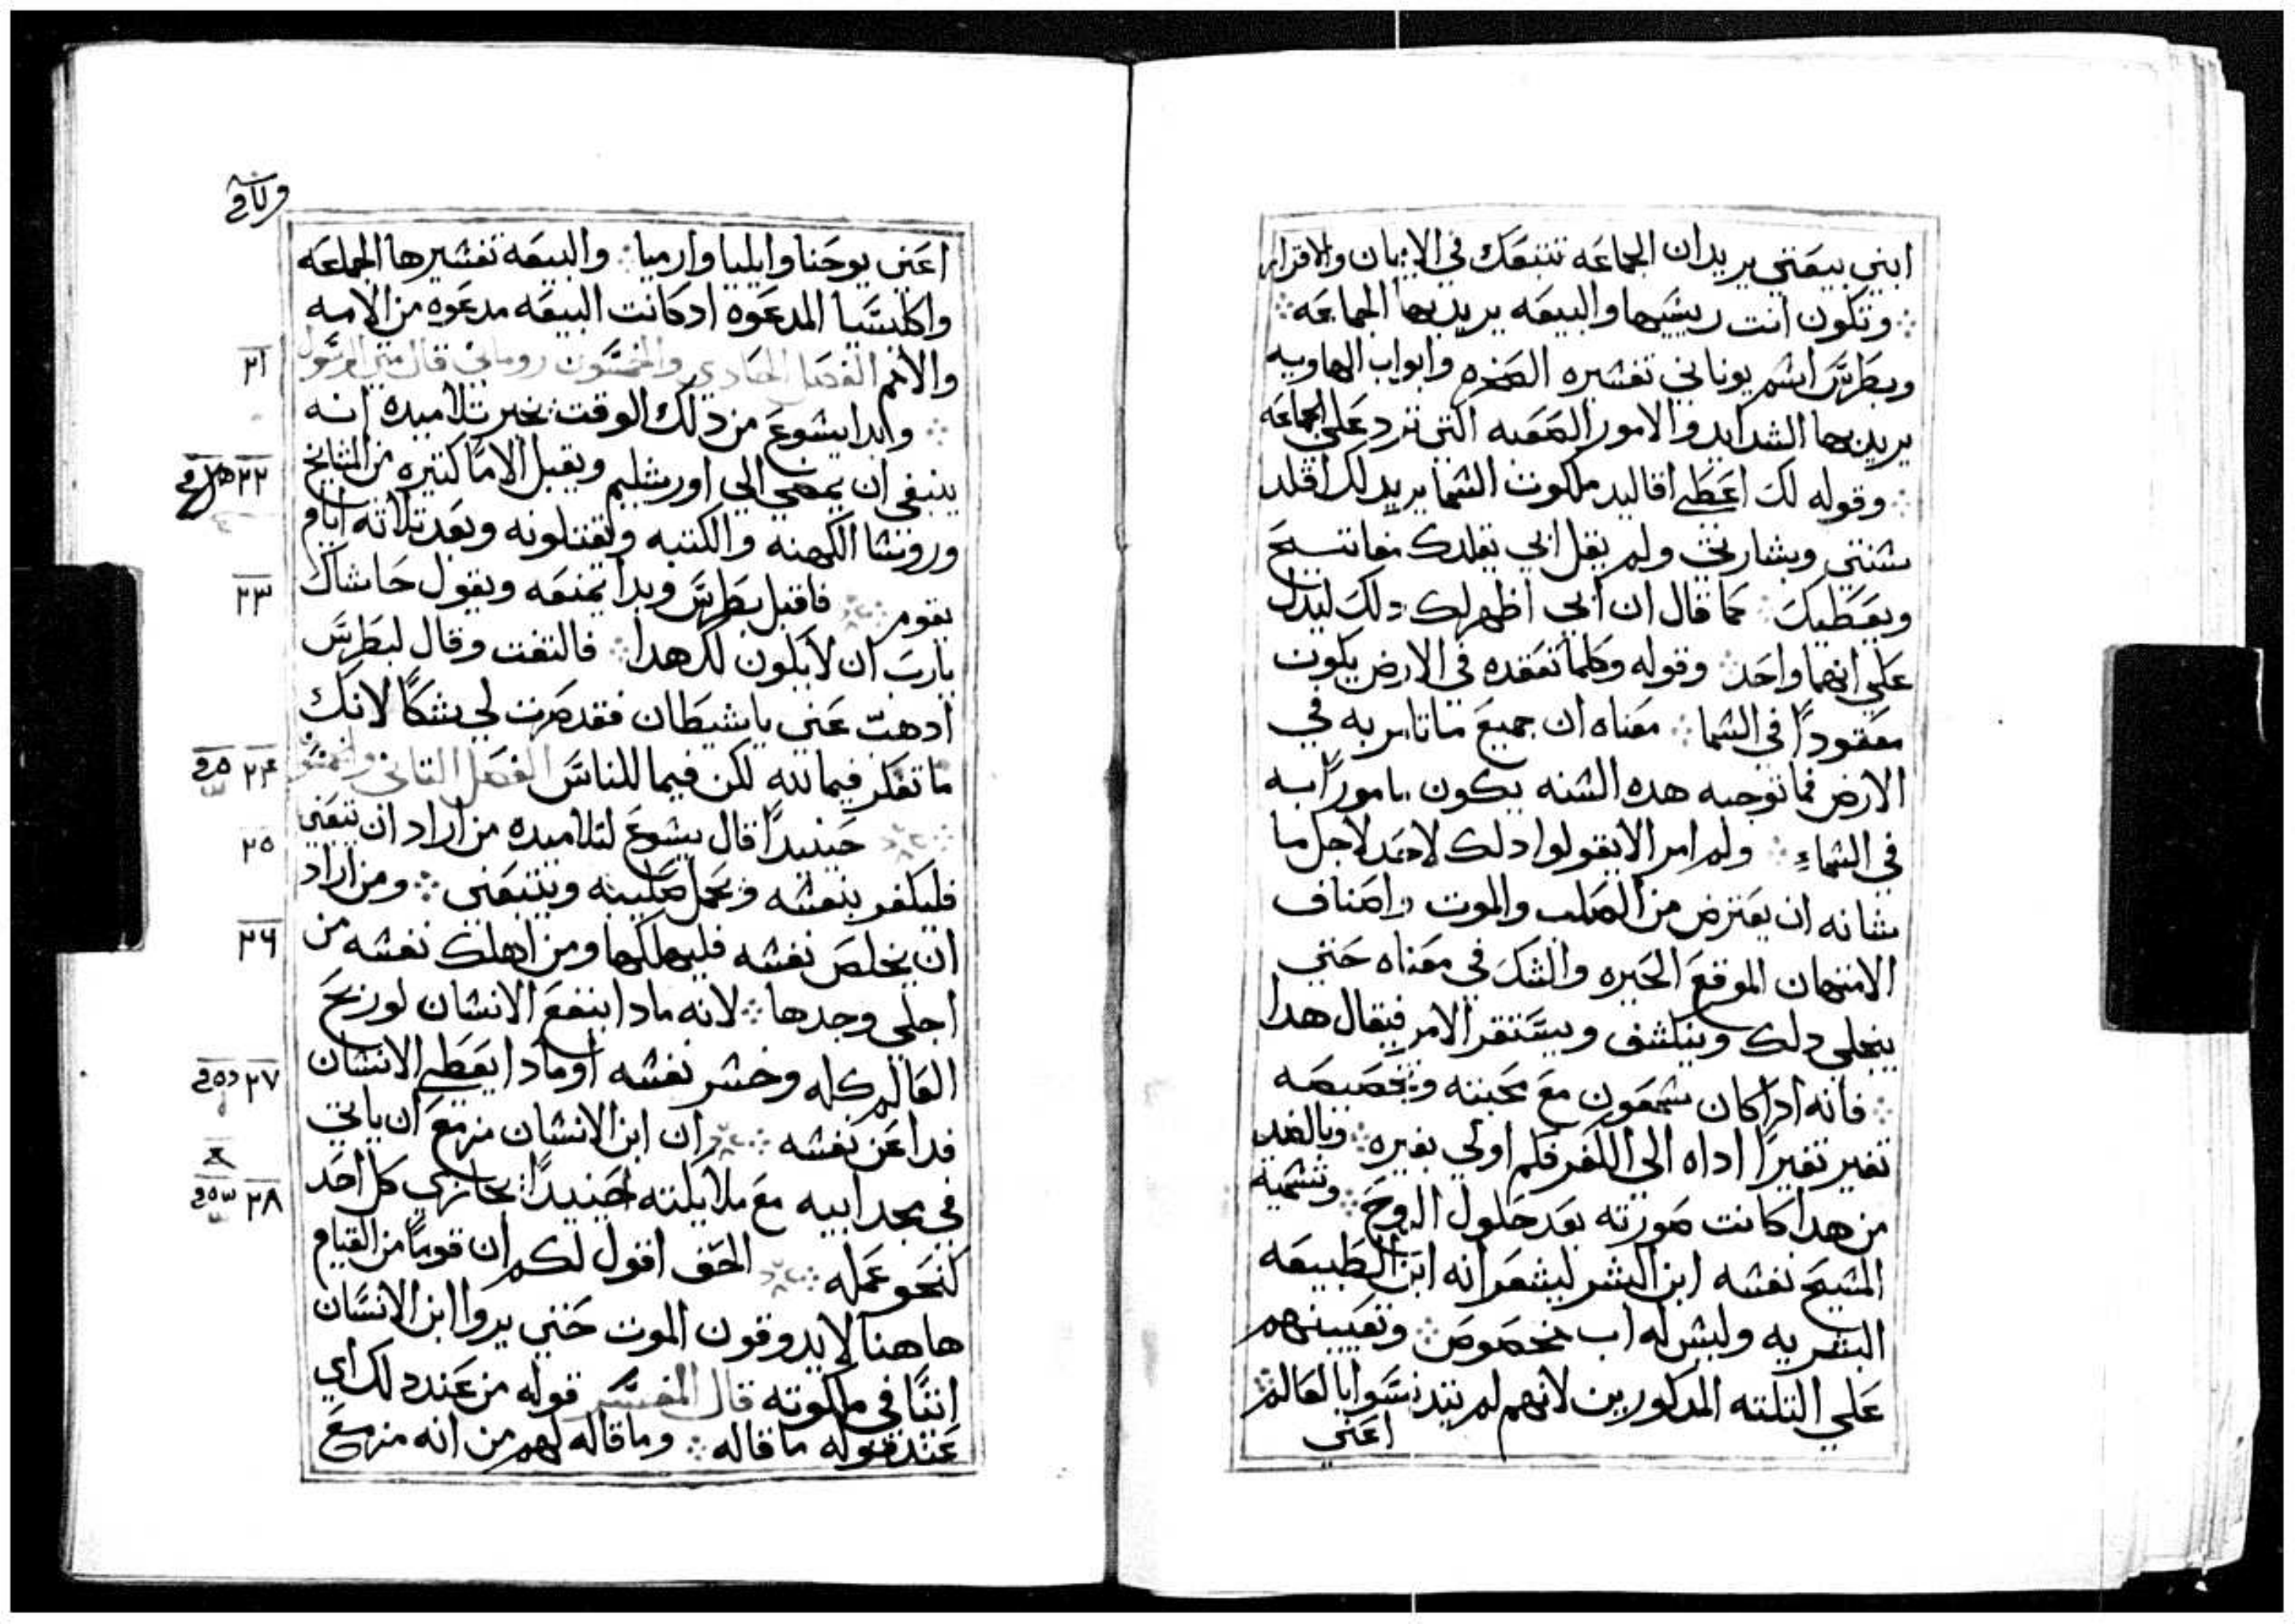 ابني بيعتي يريد ان الجماعه تتبعك في الايمان والاقرار
وتكون انت ريسها والبيعه يريد بها الجماعه
وبطرس اسم يوناني تفسيره الصخره وابواب الهاويه
يريد بها الشدايد والامور الصعبه التي ترد علي الجماعه
وقوله لك اعطي اقاليد ملكوت السما يريد لك اقلد
سنتي وبشارتي ولم يقل ابي يقلدك مفاتيح
ويعطيك كما قال ان ابي اظهر لك دلك ليدل
علي انهما واحد وقوله وكلما تعقده في الارض يكون
معقودًا في السما معناه ان جميع ما تامر به في
الارض فما توجبه هده السنه يكون مامورًا به
في السماء ولم امر الا يقولوا دلك لاحد لاجل ما
شانه ان يعترض من الصلب والموت واصناف
الامتهان الموقع الحيره والشك في معناه حتي
ينجلي دلك وينكشف ويستقر الامر فيقال هدا
فانه ادا كان شمعون مع محبته وتخصيصه
تغير تغيرًا اداه الي الكفر فكم اولي بغيره وبالضد
من هدا كانت صورته بعد حلول الروح وتسمية
المسيح نفسه ابن البشر ليشعر انه ابن الطبيعه
البشريه وليس له اب مخصوص وتعيينهم
علي التلته المدكورين لانهم لم يتدنسوا بالعالم
اعني
اعني يوحنا وايليا وارميا والبيعه تفسيرها الجماعه
واكليسيا المدعوه ادكانت البيعه مدعوه من الامه
والامم الفصل الحادي والخمسون روماني قال متي الرسول
٢١
وابدا يشوع من دلك الوقت يخبر تلاميده انه
ينبغي ان يمضي الي اورشليم ويقبل الامًا كتيره من المشايخ
٢٢
وروسا الكهنه والكتبه ويقتلونه وبعد تلاته ايام
يقوم فاقبل بطرس وبدا يمنعه ويقول حاشاك
٢٣
يارب ان لا يكون لك هدا فالتفت وقال لبطرس
ادهب عني يا شيطان فقد صرت لي شكًا لانك
ما تفكر فيما لله لكن فيما للناس الفصل التاني والخمسون
٢٤
حينيدًا قال يشوع لتلاميده من اراد ان يتبعني
٢٥
فليكفر بنفسه ويحمل صليبه ويتبعني ومن اراد
ان يخلص نفسه فليهلكها ومن اهلك نفسه من
٢٦
اجلي وجدها لانه مادا ينتفع الانسان لو ربح
العالم كله وخسر نفسه او مادا يعطي الانسان
٢٧
فدا عن نفسه ان ابن الانسان مزمع ان ياتي
في مجد ابيه مع ملايكته حينيدًا يجازي كل احد
٢٨
كنحو عمله الحق اقول لكم ان قومًا من القيام
هاهنا لا يدوقون الموت حتي يروا ابن الانسان
اتيًا في ملكوته قال المفسر قوله من عند دلك اي
عند قوله ما قاله وما قاله لهم من انه مزمع